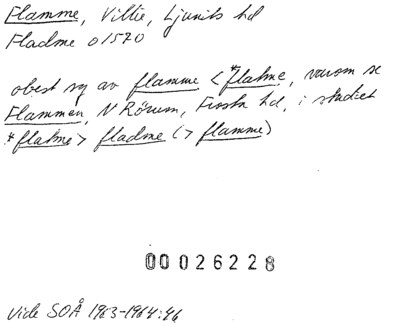 Flamme, Villie, Ljunits hd
Fladme o 1570
obest sg av flamme < *flaþme, varom se
Flammen, N Rörum, Frosta hd, i stadiet
*flaþme > fladme (> flamme)
00 026228
Vide SOÅ 1963-1964:46